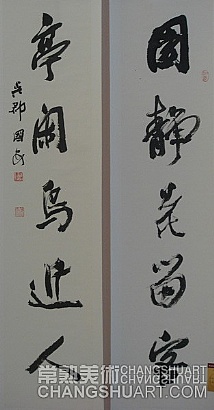 園靜花留客
亭閑鳥近人
吳郡國
常熟美術
CHANGSHUART
CHANGSHUART.COM